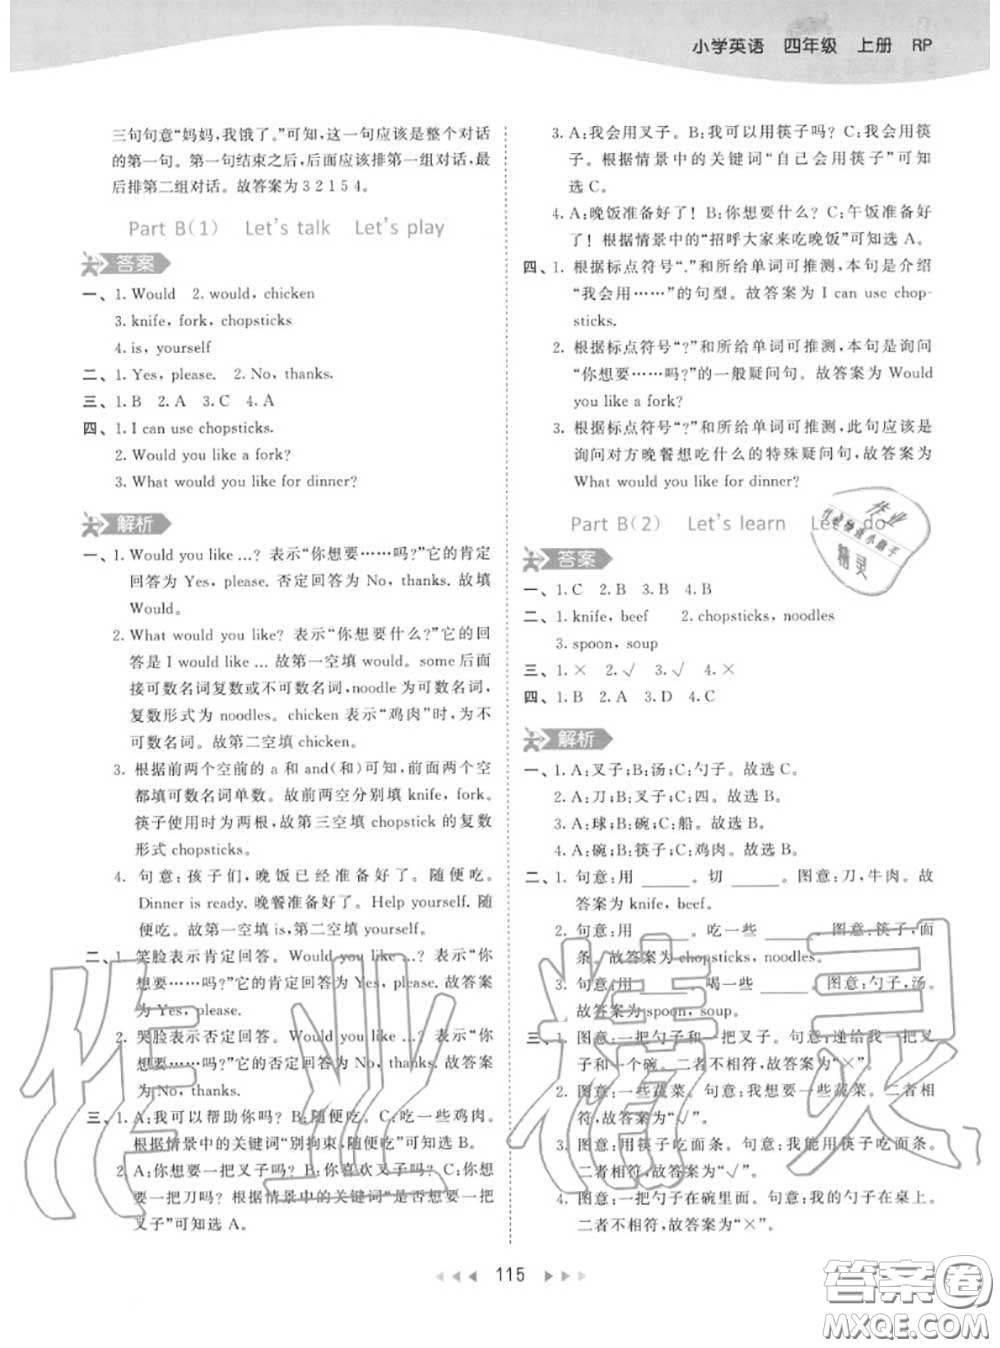 小学英语 四年级 上册 RP
三句句意“妈妈,我饿了。”可知,这一句应该是整个对话
的第一句。第一句结束之后,后面应该排第一组对话,最
后排第二组对话。故答案为 3 2 1 5 4。
Part B(1) Let's talk Let's play
答案
一、1. Would 2. would, chicken
3. knife, fork, chopsticks
4. is, yourself
二、1. Yes, please. 2. No, thanks.
三、1. B 2. A 3. C 4. A
四、1. I can use chopsticks.
2. Would you like a fork?
3. What would you like for dinner?
解析
一、1. Would you like …? 表示“你想要……吗?”它的肯定
回答为 Yes, please. 否定回答为 No, thanks. 故填
Would。
2. What would you like? 表示“你想要什么?”它的回
答是 I would like … 故第一空填 would。some 后面
接可数名词复数或不可数名词,noodle 为可数名词,
复数形式为 noodles。chicken 表示“鸡肉”时,为不
可数名词。故第二空填 chicken。
3. 根据前两个空前的 a 和 and(和)可知,前面两个空
都填可数名词单数。故前两空分别填 knife, fork。
筷子使用时为两根,故第三空填 chopstick 的复数
形式 chopsticks。
4. 句意:孩子们,晚饭已经准备好了。随便吃。
Dinner is ready. 晚餐准备好了。Help yourself. 随
便吃。故第一空填 is,第二空填 yourself。
二、1. 笑脸表示肯定回答。Would you like …? 表示“你
想要……吗?”它的肯定回答为 Yes, please. 故答案
为 Yes, please.
2. 哭脸表示否定回答。Would you like …? 表示“你
想要……吗?”它的否定回答为 No, thanks. 故答案
为 No, thanks.
三、1. A:我可以帮助你吗? B:随便吃。C:吃一些鸡肉。
根据情景中的关键词“别拘束,随便吃”可知选 B。
2. A:你想要一把叉子吗? B:你喜欢叉子吗? C:你想要
一把刀吗? 根据情景中的关键词“是否想要一把
叉子”可知选 A。
3. A:我会用叉子。B:我可以用筷子吗? C:我会用筷
子。根据情景中的关键词“自己会用筷子”可知
选 C。
4. A:晚饭准备好了! B:你想要什么? C:午饭准备好
了! 根据情景中的“招呼大家来吃晚饭”可知选 A。
四、1. 根据标点符号“.”和所给单词可推测,本句是介绍
“我会用……”的句型。故答案为 I can use chop-
sticks.
2. 根据标点符号“?”和所给单词可推测,本句是询问
“你想要……吗?”的一般疑问句。故答案为 Would
you like a fork?
3. 根据标点符号“?”和所给单词可推测,此句应该是
询问对方晚餐想吃什么的特殊疑问句,故答案为
What would you like for dinner?
Part B(2) Let's learn Let's do
答案
一、1. C 2. B 3. B 4. B
二、1. knife, beef 2. chopsticks, noodles
3. spoon, soup
三、1. × 2. √ 3. √ 4. ×
四、1. B 2. A 3. D 4. C
解析
一、1. A:叉子;B:汤;C:勺子。故选 C。
2. A:刀;B:叉子;C:四。故选 B。
3. A:球;B:碗;C:船。故选 B。
4. A:碗;B:筷子;C:鸡肉。故选 B。
二、1. 句意:用 ______。切 ______。图意:刀,牛肉。故
答案为 knife, beef。
2. 句意:用 ______。吃一些 ______。图意:筷子,面
条。故答案为 chopsticks, noodles。
3. 句意:用 ______。喝一些 ______。图意:勺子,汤。
故答案为 spoon, soup。
三、1. 图意:一把勺子和一把叉子。句意:递给我一把叉
子和一个碗。二者不相符,故答案为“×”。
2. 图意:一些蔬菜。句意:我想要一些蔬菜。二者相
符,故答案为“√”。
3. 图意:用筷子吃面条。句意:我能用筷子吃面条。
二者相符,故答案为“√”。
4. 图意:一把勺子在碗里面。句意:我的勺子在桌上。
二者不相符,故答案为“×”。
115
作业精灵
答案圈
MXQE.COM